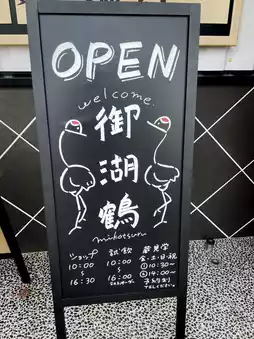 OPEN
welcome.
御湖鶴
mikotsuru
ショップ
10:00
~
16:30
試飲
10:00
~
16:00
蔵見学
金・土・日・祝
①10:30~
②14:00~